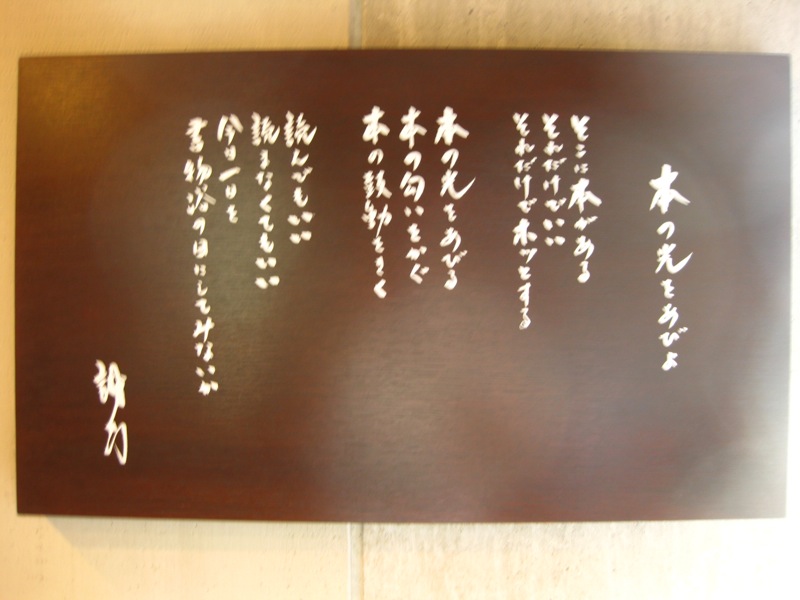 本の光をあびよ
そこに本がある
それだけでいい
それだけでホッとする
本の光をあびる
本の匂いをかぐ
本の鼓動をきく
読んでもいい
読まなくてもいい
今日一日を
書物浴の日にしてみないか